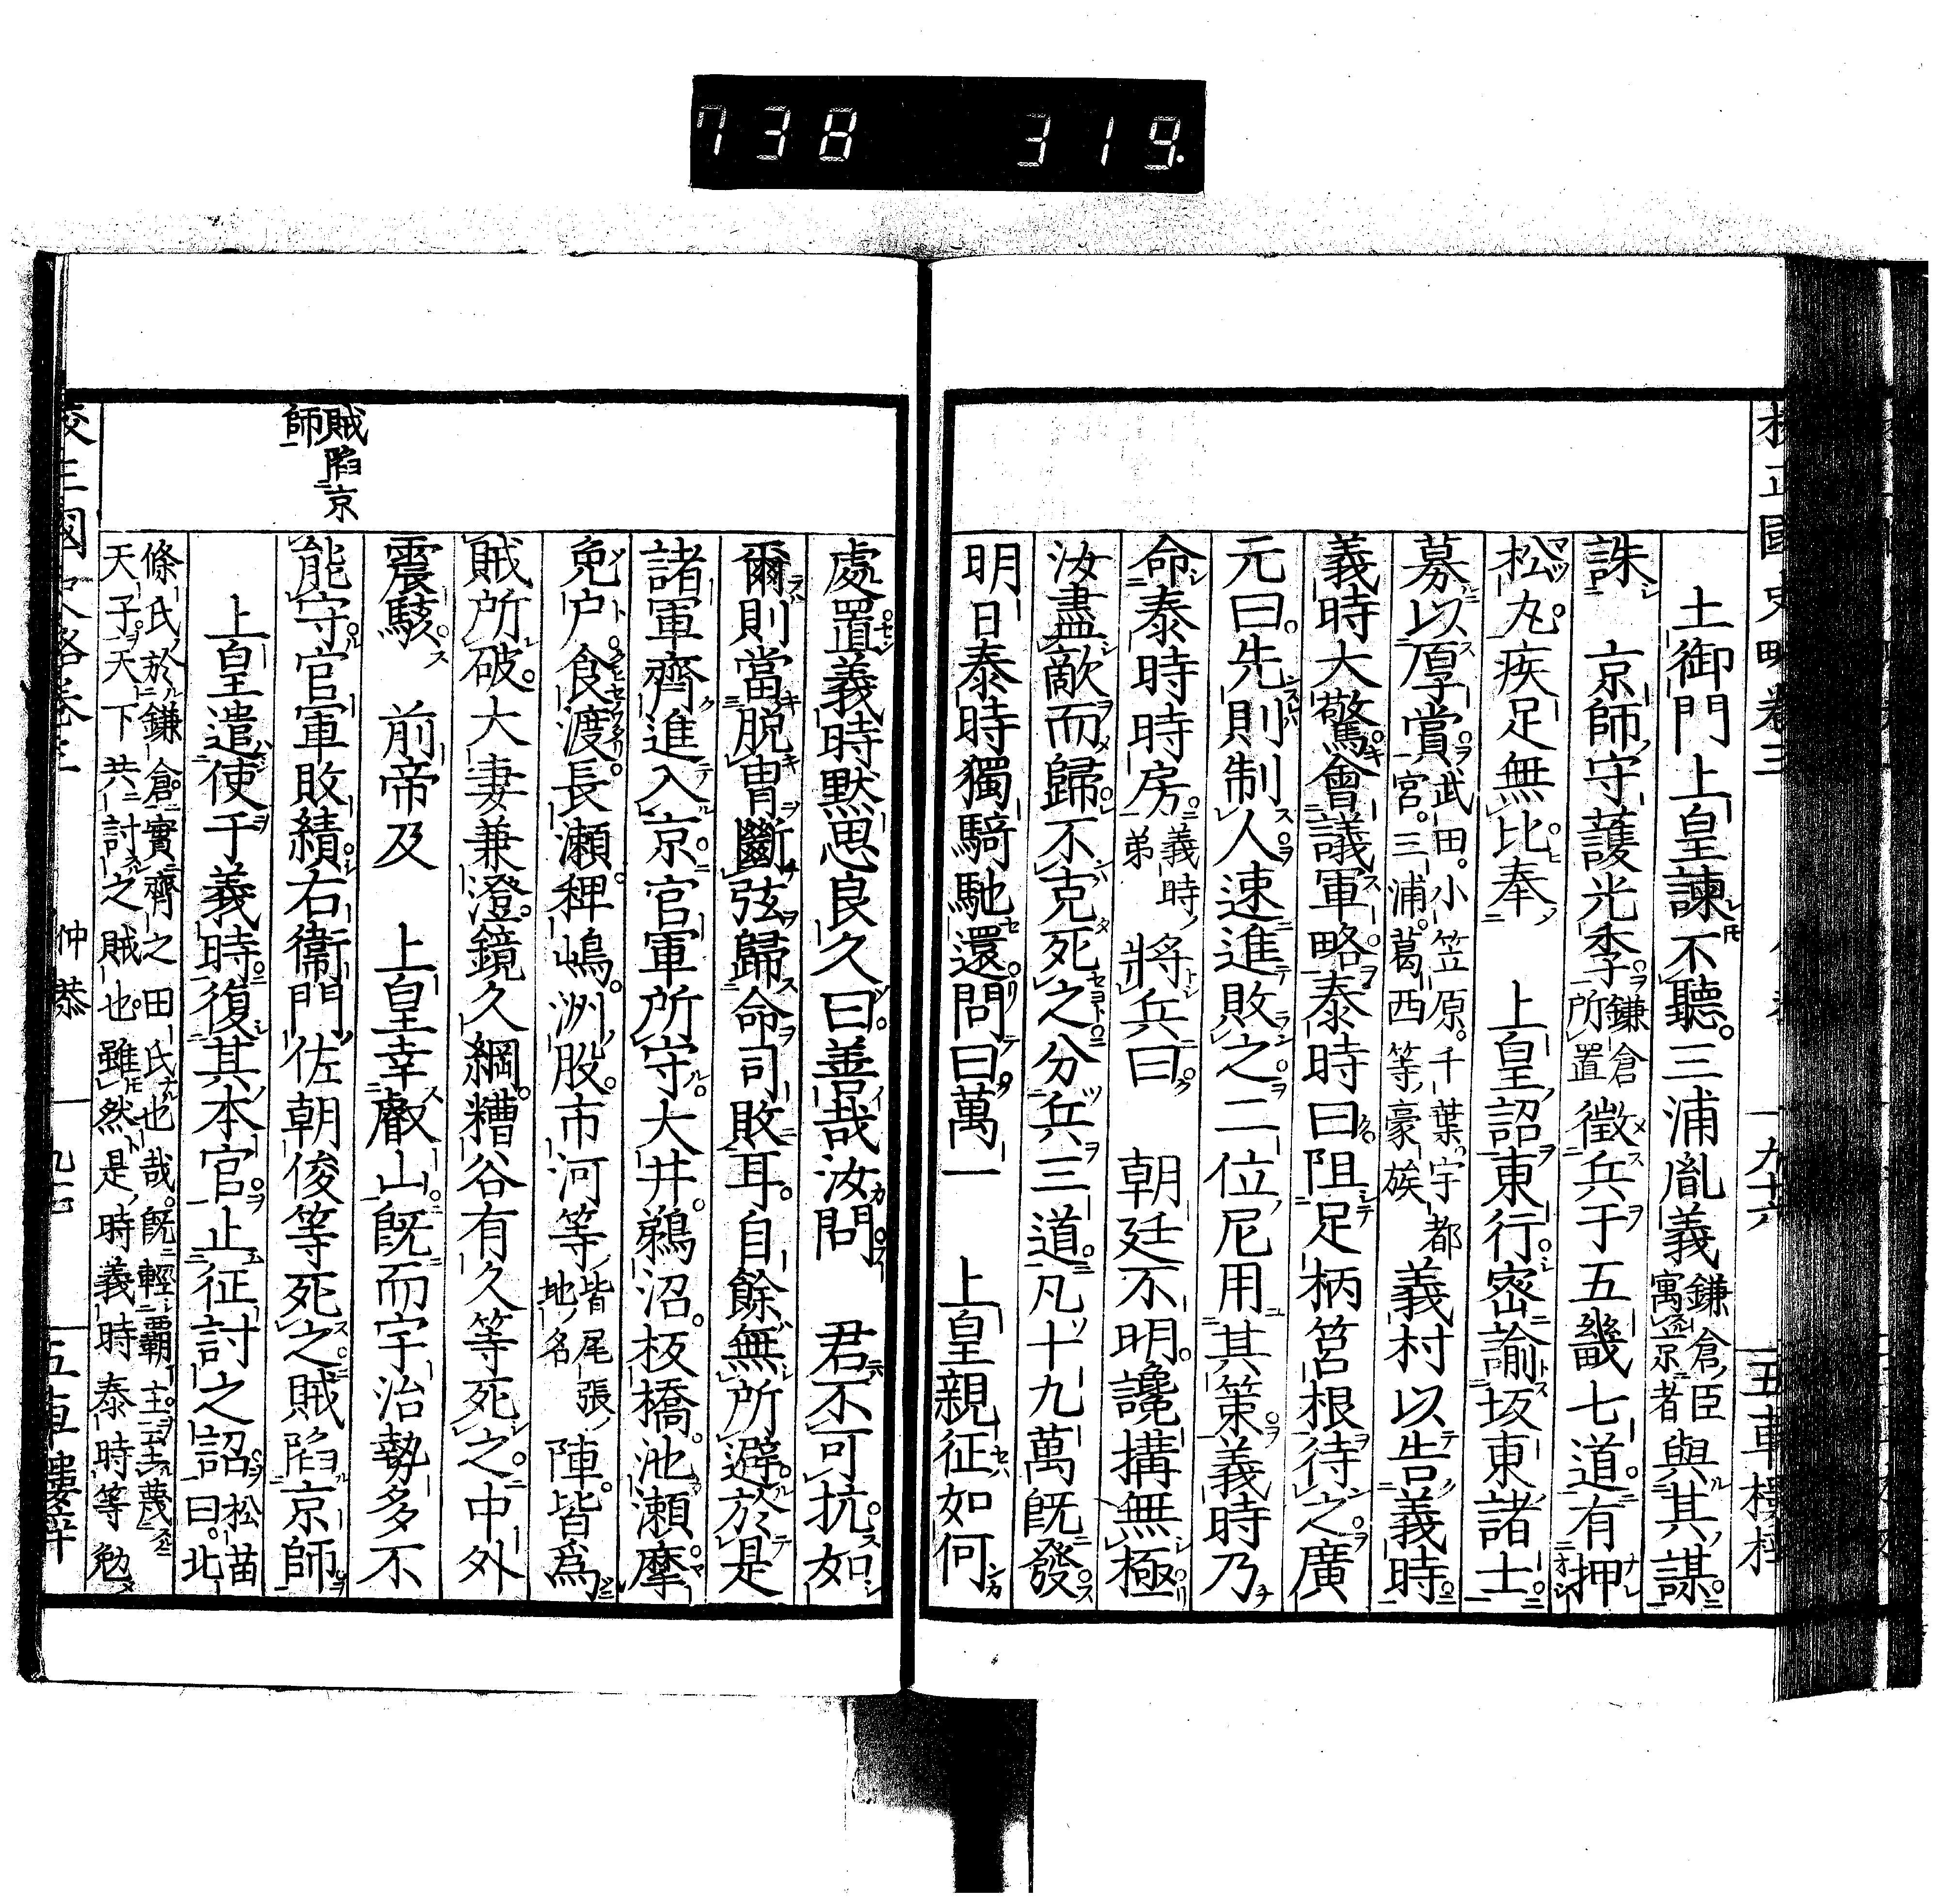 738 319.
土御門 上皇諫不聽。三浦胤義鎌倉臣寓京者與其謀
誅 京師守護光季鎌倉所置徵兵于五畿七道有押
松丸疾足無比奉 上皇詔東行密諭坂東諸士
募以厚賞武田。小笠原。千葉宇都宮。三浦。葛西等豪族義村以告義時
義時大驚會議軍略泰時曰阻足柄筥根待之廣
元曰先則制人速進敗之二位尼用其策義時乃
命泰時時房義時弟將兵曰 朝廷不明讒搆無極
汝盡敵而歸不克死之分兵三道凡十九萬既發
明日泰時獨騎馳還問曰萬一 上皇親征如何
處置義時默思良久曰善哉汝問 君不可抗如
爾則當脫冑斷弦歸命司敗耳自餘無所避於是
諸軍齊進入京官軍所守大井。鵜沼。板橋。池瀨摩
免戶食渡。長瀨。稗嶋。洲股。市河等皆尾張地名陣皆爲
賊所破大妻兼澄。鏡久綱。糟谷有久等死之中外
震駭 前帝及 上皇幸叡山既而宇治勢多不
能守官軍敗績右衞門佐朝俊等死之賊陷京師
上皇遣使于義時復其本官止征討之詔松苗曰。北
條氏於鎌倉實齊之田氏也哉。既輕霸主
天子天下共討之賊也。雖然是時義時泰時等勉
賊陷京師
仲恭